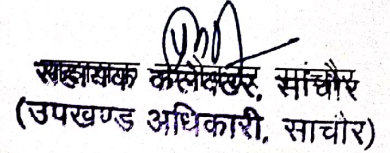 सहायक कलेक्टर, सांचौर
(उपखण्ड अधिकारी, साचोर)